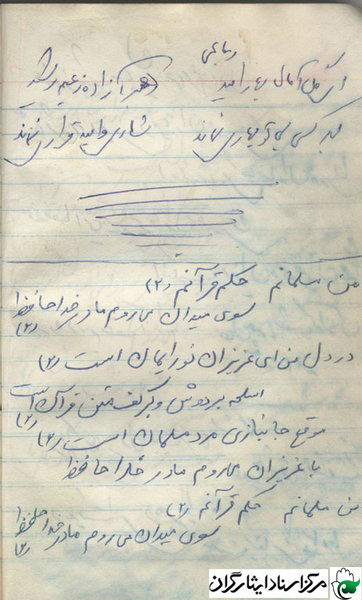 رباعی
ای گل آمال بهار امید
هر کسی بی تو بهاری نماند
من مسلمانم حکم قرآنم (۲)
سوی میدان می روم مادر خدا حافظ (۲)
در دل من ای عزیزان نور ایمان است (۲)
اسلحه بر دوش و بر کف متن قرآن است (۲)
موقع جانبازی مرد مسلمان است (۲)
با عزیزان می روم مادر خدا حافظ
من مسلمانم حکم قرآنم (۲)
سوی میدان می روم مادر خدا حافظ (۲)
مرکز اسناد ایثارگران